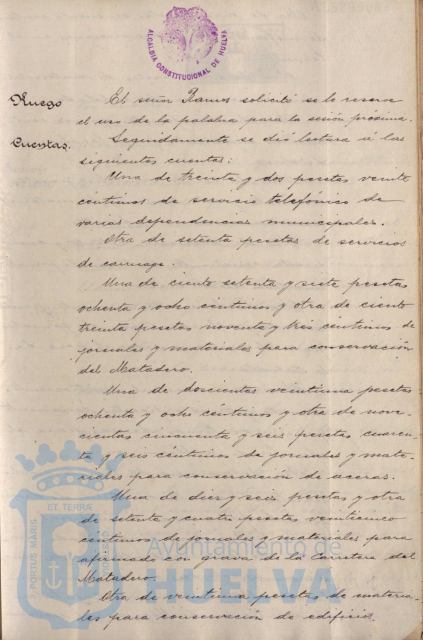 ALCALDIA CONSTITUCIONAL DE HUELVA
Ruego
El señor Ramos solicitó se le reserve
el uso de la palabra para la sesión próxima.
Cuentas.
Seguidamente se dió lectura á las
siguientes cuentas:
Una de treinta y dos pesetas veinte
centimos de servicio telefónico de
varias dependencias municipales.
Otra de setenta pesetas de servicios
de carruage.
Una de ciento setenta y siete pesetas
ochenta y ocho centimos y otra de ciento
treinta pesetas noventa y tres centimos de
jornales y materiales para conservación
del Matadero.
Una de doscientas veintiuna pesetas
ochenta y ocho centimos y otra de nove-
cientas cincuenta y seis pesetas cuaren-
ta y seis céntimos de jornales y mate-
riales para conservación de aceras.
Una de diez y seis pesetas y otra
de setenta y cuatro pesetas veinticinco
centimos de jornales y materiales para
afirmado con grava de la Carretera del
Matadero.
Otra de veintiuna pesetas de materia-
les para conservación de edificio.
PORTUS MARIS ET TERRA
Ayuntamiento de
HUELVA